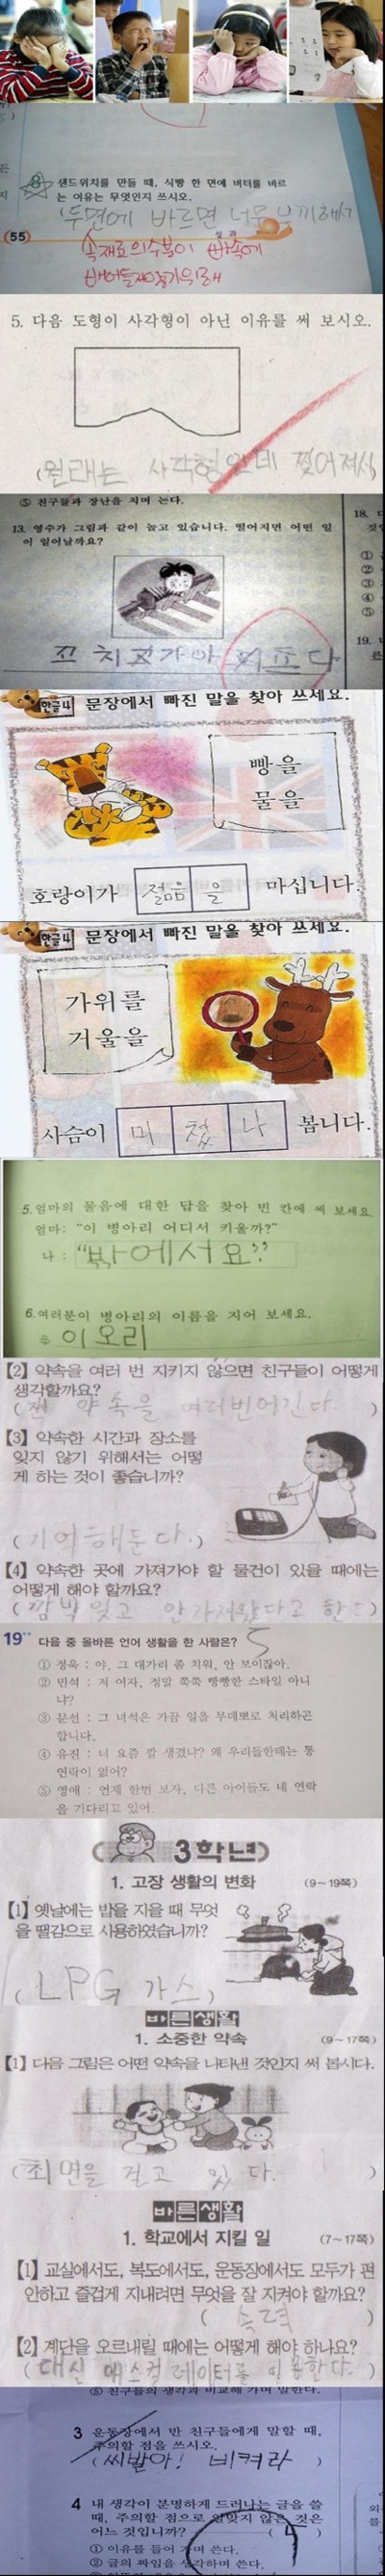 8 샌드위치를 만들 때, 식빵 한 면에 버터를 바르
는 이유는 무엇인지 쓰시오.
(두면에 바르면 너무 느끼해서
실과
55
속재료의수분이 빵속에
배어들지않기위해
5. 다음 도형이 사각형이 아닌 이유를 써 보시오.
(원래는 사각형인데 찢어져서)
⑤ 친구들과 장난을 치며 논다.
13. 영수가 그림과 같이 놀고 있습니다. 떨어지면 어떤 일
이 일어날까요?
18.
①
②
③
④
⑤
19.
한글4 문장에서 빠진 말을 찾아 쓰세요.
빵을
물을
호랑이가 젊음을 마십니다.
한글4 문장에서 빠진 말을 찾아 쓰세요.
가위를
거울을
사슴이 미쳤나 봅니다.
5. 엄마의 물음에 대한 답을 찾아 빈 칸에 써 보세요.
엄마: "이 병아리 어디서 키울까?"
나 : "밖에서요?"
6. 여러분이 병아리의 이름을 지어 보세요.
이오리
【2】 약속을 여러 번 지키지 않으면 친구들이 어떻게
생각할까요?
(쟨 약속을 여러번어긴다. )
【3】 약속한 시간과 장소를
잊지 않기 위해서는 어떻
게 하는 것이 좋습니까?
(기억해둔다.)
【4】 약속한 곳에 가져가야 할 물건이 있을 때에는
어떻게 해야 할까요?
(깜박 잊고 안가져왔다고 한다)
19 다음 중 올바른 언어 생활을 한 사람은? 5
① 정욱 : 야, 그 대가리 좀 치워, 안 보이잖아.
② 민석 : 저 여자, 정말 쭉쭉 빵빵한 스타일 아니
냐?
③ 문선 : 그 녀석은 가끔 일을 무데뽀로 처리하곤
합니다.
④ 유진 : 너 요즘 깔 생겼냐? 왜 우리들한테는 통
연락이 없어?
⑤ 영애 : 언제 한번 보자, 다른 아이들도 네 연락
을 기다리고 있어.
3학년
1. 고장 생활의 변화 (9~19쪽)
【1】 옛날에는 밥을 지을 때 무엇
을 땔감으로 사용하였습니까?
(LPG 가스)
바른생활
1. 소중한 약속 (9~17쪽)
【1】 다음 그림은 어떤 약속을 나타낸 것인지 써 봅시다.
(최면을 걸고 있다. )
바른생활
1. 학교에서 지킬 일 (7~17쪽)
【1】 교실에서도, 복도에서도, 운동장에서도 모두가 편
안하고 즐겁게 지내려면 무엇을 잘 지켜야 할까요?
( 속력 )
【2】 계단을 오르내릴 때에는 어떻게 해야 하나요?
(대신 에스컬레이터를 이용한다. )
⑤ 친구들의 생각과 비교해 가며 말한다.
3 운동장에서 반 친구들에게 말할 때,
주의할 점을 쓰시오.
(씨발아! 비켜라 )
4 내 생각이 분명하게 드러나는 글을 쓸
때, 주의할 점으로 알맞지 않은 것은
어느 것입니까? ( 4 )
① 이유를 들어 가며 쓴다.
② 글의 짜임을 생각하며 쓴다.